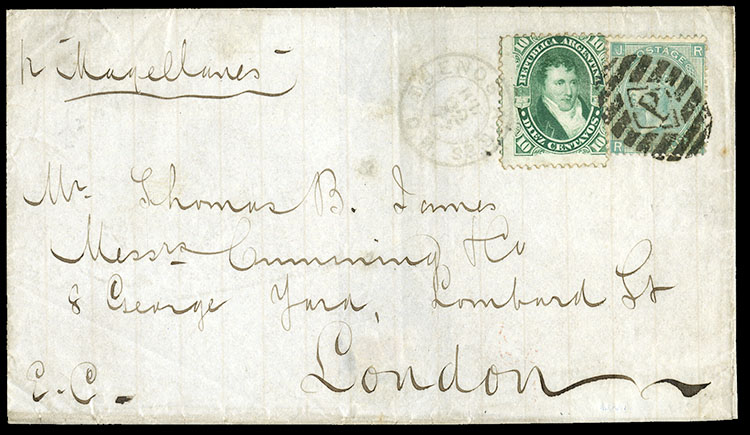 pr "Magellanes"
BUENOS
10 REPUBLICA ARGENTINA 10
10 DIEZ CENTAVOS 10
J POSTAGE R
R
Mr. Thomas B. James
Messrs Cumming & Co
8 George Yard, Lombard St
E.C.
London